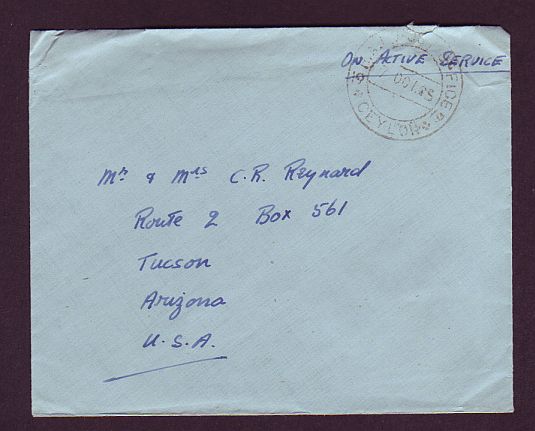 ON ACTIVE SERVICE
CEYLON
Mr & Mrs C.R. Reynard
Route 2 Box 561
Tucson
Arizona
U.S.A.